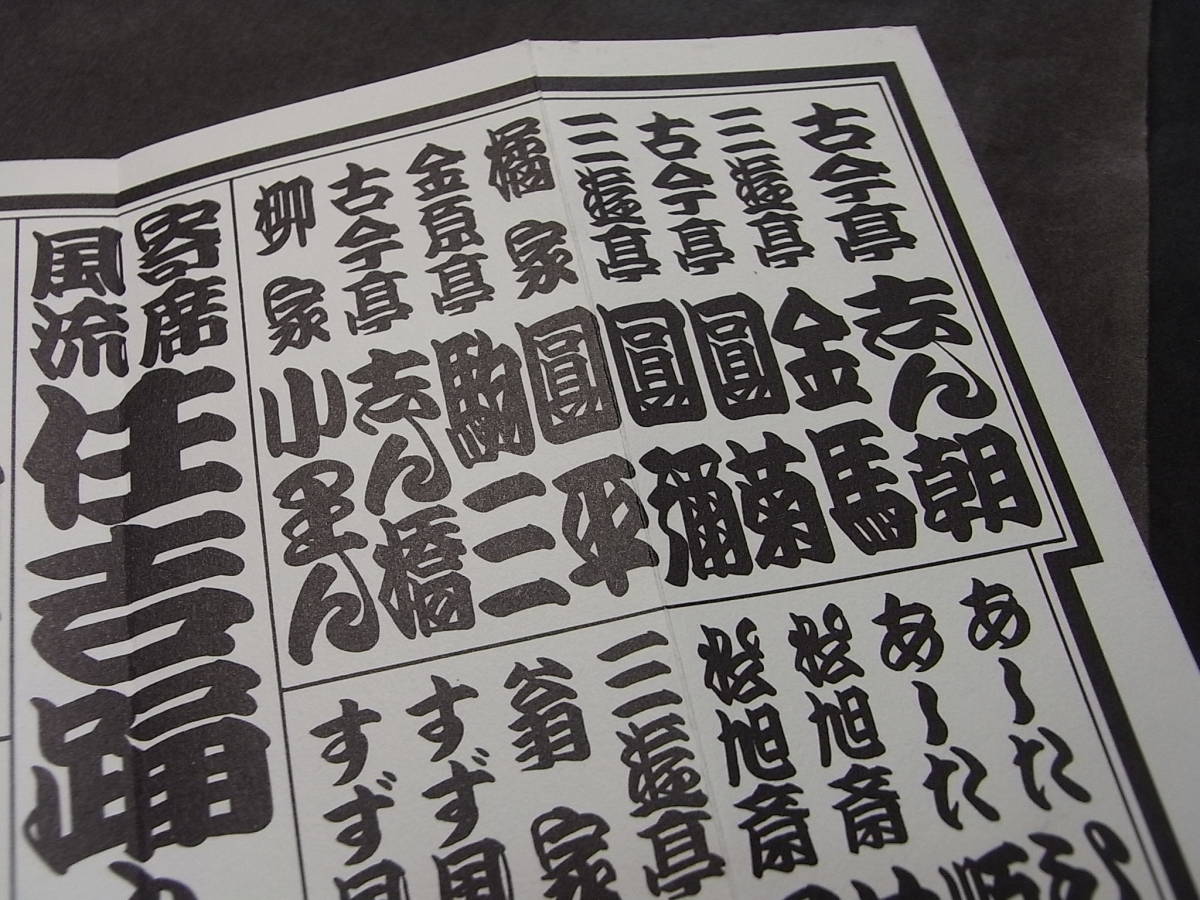 古今亭志ん朝
三遊亭金馬
古今亭圓菊
三遊亭圓彌
橘家圓平
金原亭駒三
古今亭志ん橋
柳家小里ん
あした
あした順
松旭斎
松旭斎
三遊亭
翁家
すず風
すず風
寄席
風流
住吉踊